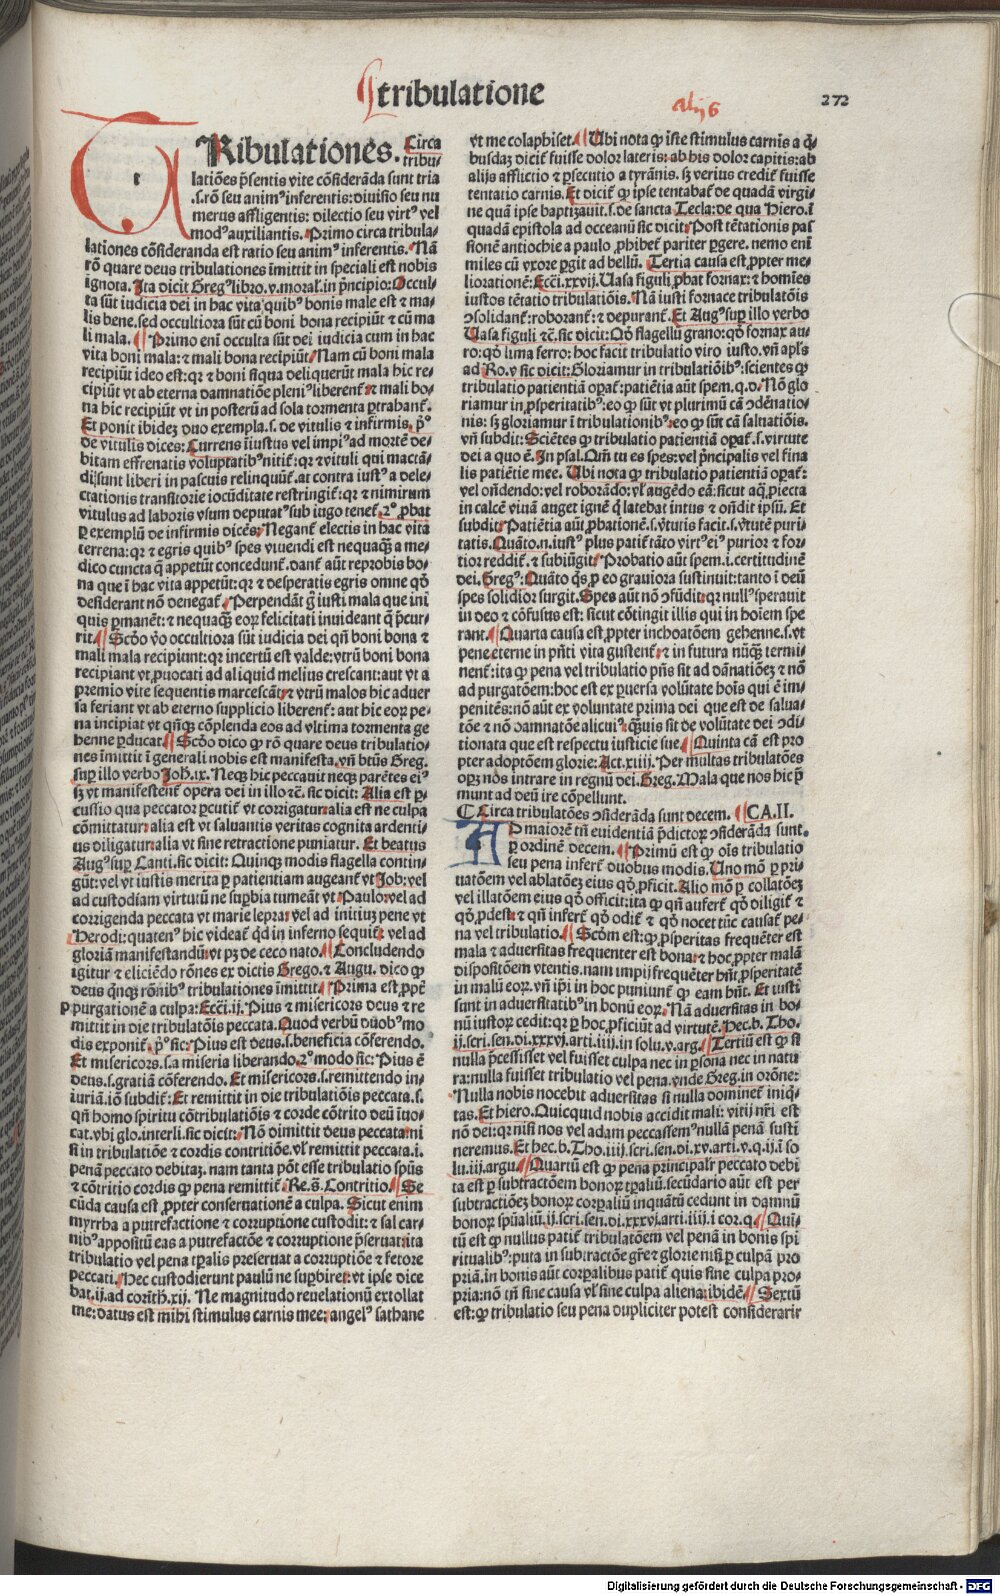 tribulatione
272
TRibulationes. Circa
tribu/
latiões p̃sentis vite cõsiderãda sunt tria
.s.rõ seu animꝰ inferentis: diuisio seu nu
merus affligentis: dilectio seu virtꝰ vel
modꝰ auxiliantis. Primo circa tribula/
lationes cõsideranda est ratio seu animꝰ inferentis. Nã
rõ quare deus tribulationes ĩmittit in speciali est nobis
ignota. Ita dicit Gregꝰ libro.v.moral. in p̃ncipio: Occul/
ta sũt iudicia dei in hac vita quibꝰ bonis male est ⁊ ma/
lis bene. sed occultiora sũt cũ boni bona recipiũt ⁊ cũ ma
li mala. Primo eni occulta sũt dei iudicia cum in hac
vita boni mala: ⁊ mali bona recipiũt. Nam cũ boni mala
recipiũt ideo est: qꝛ ⁊ boni siqua deliquerũt mala hic re/
cipiũt vt ab eterna damnatiõe pleniꝰ liberent̃ ⁊ mali bo/
na hic recipiũt vt in posterũ ad sola tormenta ꝑtrahant̃.
Et ponit ibidez duo exempla.s. de vitulis ⁊ infirmis. p̃º
de vitulis dices: Currens ĩiustus vel impiꝰ ad mortẽ de/
bitam effrenatis voluptatibꝰ nitit̃: qꝛ ⁊ vituli qui mactã/
di sunt liberi in pascuis relinquũt̃. at contra iustꝰ a dele/
ctationis transitorie iocũditate restringit̃: qꝛ ⁊ nimirum
vitulus ad laboris vsum deputatꝰ sub iugo tenet̃. 2º ꝓbat
ꝑ exemplũ de infirmis dicẽs: Negant̃ electis in hac vita
terrena: qꝛ ⁊ egris quibꝰ spes viuendi est nequaq̃ a me/
dico cuncta q̃ appetũt concedunt̃. dant̃ aũt reprobis bo/
na que ĩ hac vita appetũt: qꝛ ⁊ desperatis egris omne qð
desiderant nõ denegat̃. Perpendãt g̃ iusti mala que ini
quis ꝑmanẽt: ⁊ nequaq̃ eoꝝ felicitati inuideant q̃ p̃cur/
rit. Scðo vo occultiora sũt iudicia dei qñ boni bona ⁊
mali mala recipiunt: qꝛ incertũ est valde: vtrũ boni bona
recipiant vt ꝓuocati ad aliquid melius crescant: aut vt a
premio vite sequentis marcescãt: ⁊ vtrũ malos hic aduer
sa feriant vt ab eterno supplicio liberent̃: ant hic eoꝝ pe/
na incipiat vt qñqꝫ cõplenda eos ad vltima tormenta ge
henne ꝑducat. Scðo dico ꝙ rõ quare deus tribulatio/
nes ĩmittit ĩ generali nobis est manifesta. vñ btũs Greg.
suꝑ illo verbo Joh̃.ix. Neqꝫ hic peccauit neqꝫ parẽtes eiꝰ
sꝫ vt manifestent̃ opera dei in illo ⁊c̃. sic dicit: Alia est ꝑ/
cussio qua peccator ꝑcutit̃ vt corrigatur: alia est ne culpa
cõmittatur: alia est vt saluantis veritas cognita ardenti/
us diligatur: alia vt sine retractione puniatur. Et beatus
Augꝰ suꝑ Canti. sic dicit: Quinqꝫ modis flagella contin/
gũt: vel vt iustis merita ꝑ patientiam augeant̃ vt Job: vel
ad custodiam virtutũ ne suꝑbia tumeãt vt Paulo: vel ad
corrigenda peccata vt marie lepra: vel ad initiuꝫ pene vt
Herodi: quatenꝰ hic videat̃ q̃d in inferno sequit̃: vel ad
gloriã manifestandũ: vt pꝫ de ceco nato. Concludendo
igitur ⁊ eliciẽdo rõnes ex dictis Grego. ⁊ Augu. dico ꝙ
deus q̃nqꝫ rõnibꝰ tribulationes ĩmittit. Prima est ꝓpt̃
purgationẽ a culpa: Ecc̃i.ij. Pius ⁊ misericors deus ⁊ re
mittit in die tribulatõis peccata. Quod verbũ duobꝰ mo
dis exponit̃. p̃º sic: Pius est deus.s. beneficia cõferendo.
Et misericors.s. a miseria liberando. 2º modo sic: Pius ẽ
deus.s. gratiã cõferendo. Et misericors.s. remittendo in/
iuriã. iõ subdit̃: Et remittit in die tribulatiõis peccata.s.
qñ homo spiritu cõtribulatiõis ⁊ corde cõtrito deũ ĩuo/
cat. vbi glo. interli. sic dicit: Nõ dimittit deus peccata: ni
si in tribulatiõe ⁊ cordis contritiõe. vl̃ remittit peccata.i.
penã peccato debitaꝫ. nam tanta põt esse tribulatio spũs
⁊ cõtritio cordis ꝙ pena remittit̃. Re.s̃. Contritio. Se
cũda causa est ꝓpter conseruationẽ a culpa. Sicut enim
myrrha a putrefactione ⁊ corruptione custodit: ⁊ sal car/
nibꝰ appositũ eas a putrefactõe ⁊ corruptione p̃seruat: ita
tribulatio vel pena tꝑalis preseruat a corruptiõe ⁊ fetore
peccati. Hec custodierunt paulũ ne suꝑbiret: vt ipse dice
bat.ij.ad corinth̃.xij. Ne magnitudo reuelationũ extollat
me: datus est mihi stimulus carnis mee: angelꝰ sathane
vt me colaphiset. Ubi nota ꝙ iste stimulus carnis a q̃/
busdaꝫ dicit̃ fuisse dolor lateris: ab his dolor capitis: ab
alijs afflictio ⁊ ꝑsecutio a tyrãnis. sꝫ verius credit̃ fuisse
tentatio carnis. Et dicit̃ ꝙ ipse tentabat̃ de quadã virgi/
ne quã ipse baptizauit.s. de sancta Tecla: de qua Hiero. ĩ
quadã epistola ad occeanũ sic dicit: Post tẽtationis pas
sionẽ antiochie a paulo ꝓhibet̃ pariter ꝑgere. nemo eni
miles cũ vxore ꝑgit ad bellũ. Tertia causa est ꝓpter me/
liorationẽ: Ecc̃i.xxvij. Uasa figuli ꝓbat fornax: ⁊ homies
iustos tẽtatio tribulatiõis. Nã iusti fornace tribulatõis
ↄsolidant̃: roborant̃: ⁊ depurant̃. Et Augꝰ suꝑ illo verbo
Uasa figuli ⁊c̃. sic dicit: Qð flagellũ grano: qð fornax au/
ro: qð lima ferro: hoc facit tribulatio viro iusto. vñ apl̃s
ad Ro.v sic dicit: Gloriamur in tribulatiõibꝰ: scientes ꝙ
tribulatio patientiã oꝑat̃: patiẽtia aũt spem. q.d. Nõ glo
riamur in ꝓsperitatibꝰ: eo ꝙ sũt vt plurimũ cã ↄdẽnatio/
nis: sꝫ gloriamur ĩ tribulationibꝰ: eo ꝙ sũt cã saluatiõis.
vñ subdit: Sciẽtes ꝙ tribulatio patientiã oꝑat̃.s. virtute
dei a quo ẽ. In psal. Qm̃ tu es spes: vel p̃ncipalis vel fina
lis patiẽtie mee. Ubi nota ꝙ tribulatio patientiã oꝑat̃:
vel oñdendo: vel roborãdo: vl̃ augẽdo eã: sicut aq̃ ꝓiecta
in calcẽ viuã auget ignẽ q̃ latebat intus ⁊ oñdit ip̃sũ. Et
subdit: Patiẽtia aũt ꝓbationẽ.s. v̓tutis facit.s. v̓tutẽ puri
tatis. Quãto.n. iustꝰ plus patit̃ tãto virtꝰ eiꝰ purior ⁊ for/
tior reddit̃. ⁊ subiũgit: Probatio aũt spem.i. certitudinẽ
dei. Gregꝰ: Quãto q̃s ꝓ eo grauiora sustinuit: tanto ĩ deũ
spes solidior surgit. Spes aũt nõ ↄfũdit: qꝛ nullꝰ sperauit
in deo ⁊ cõfusus est: sicut cõtingit illis qui in hoĩem spe
rant. Quarta causa est ꝓpter inchoatõem gehenne.s. vt
pene eterne in p̃nti vita gustent̃: ⁊ in futura nũq̃ termi/
nent̃: ita ꝙ pena vel tribulatio p̃ns sit ad dãnatiõeꝫ ⁊ nõ
ad purgatõem: hoc est ex ꝑuersa volũtate hoĩs qui ẽ ĩm/
penitẽs: nõ aũt ex voluntate prima dei que est de salua/
tõe ⁊ nõ damnatõe alicuiꝰ: q̃uis sit de volũtate dei ↄdi/
tionata que est respectu iusticie sue. Quinta cã est pro
pter adoptõem glorie: Act.xiiij. Per multas tribulatões
opꝫ nos intrare in regnũ dei. Greg. Mala que nos hic p̃
munt ad deũ ire cõpellunt.
Circa tribulatões ↄsiderãda sunt decem. CA.II.
AD maiorẽ tñ euidentiã p̃dictoꝝ ↄsiderãda sunt
ꝑ ordinẽ decem. Primũ est ꝙ oĩs tribulatio
seu pena infert̃ duobus modis. Uno mõ ꝑ pri
uatõem vel ablatõeꝫ eius qð ꝓficit. Alio mõ ꝑ collatõeꝫ
vel illatõem eius qð officit: ita ꝙ qñ aufert̃ qð diligit̃ ⁊
qð ꝓdest: ⁊ qñ infert̃ qð odit̃ ⁊ qð nocet tũc causat̃ pe/
na vel tribulatio. Scðm est: ꝙ ꝓsperitas frequẽter est
mala ⁊ aduersitas frequenter est bona: ⁊ hoc ꝓpter malã
dispositõem vtentis. nam impij frequẽter hñt ꝓsperitatẽ
in malũ eoꝝ. vñ ip̃i in hoc puniunt̃ ꝙ eam hñt. Et iusti
sunt in aduersitatibꝰ in bonũ eoꝝ. Nã aduersitas in bo/
nũ iustoꝝ cedit: qꝛ ꝑ hoc ꝓficiũt ad virtutẽ. Hec.b. Tho.
ij.scri.sen.di.xxxvj.arti.iiij.in solu.v.arg. Tertiũ est ꝙ si
nulla p̃cessisset vel fuisset culpa nec in ꝑsona nec in natu
ra: nulla fuisset tribulatio vel pena. vnde Greg. in orõne:
Nulla nobis nocebit aduersitas si nulla dominet̃ iniq̃/
tas. Et hiero. Quicquid nobis accidit mali: vitij nr̃i est
nõ dei: qꝛ nisi nos vel adam peccassemꝰ nullã penã susti
neremus. Et hec.b. Tho.iiij.scri.sen.di.xv.arti.v.q.ij.ĩ so
lu.iij.argu. Quartũ est ꝙ pena principalr̃ peccato debi
ta est ꝑ subtractõem bonoꝝ tꝑaliũ. secũdario aũt est per
subtractiõeꝫ bonoꝝ corꝑaliũ inquãtũ cedunt in damnũ
bonoꝝ sp̃ualiũ.ij.scri.sen.di.xxxvj.arti.iiij.i cor.q. Qui/
tũ est ꝙ nullus patit̃ tribulatõem vel penã in bonis spi
ritualibꝰ: puta in subtractõe gr̃e ⁊ glorie nisi ꝑ culpã pro
priã. in bonis aũt corꝑalibus patit̃ quis sine culpa pro/
pria: nõ tñ sine causa vl̃ sine culpa aliena: ibidẽ. Sextũ
est: ꝙ tribulatio seu pena dupliciter potest considerari:
Digitalisierung gefördert durch die Deutsche Forschungsgemeinschaft - DFG